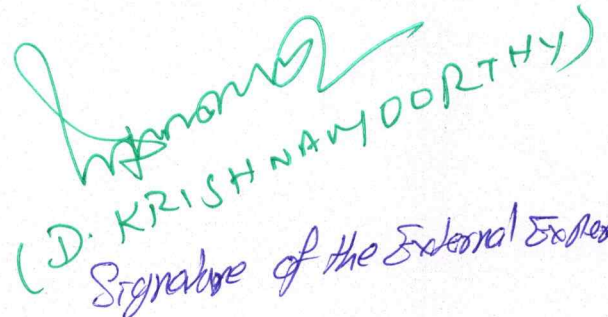 (D. KRISHNAMOORTHY)
Signature of the External Exper